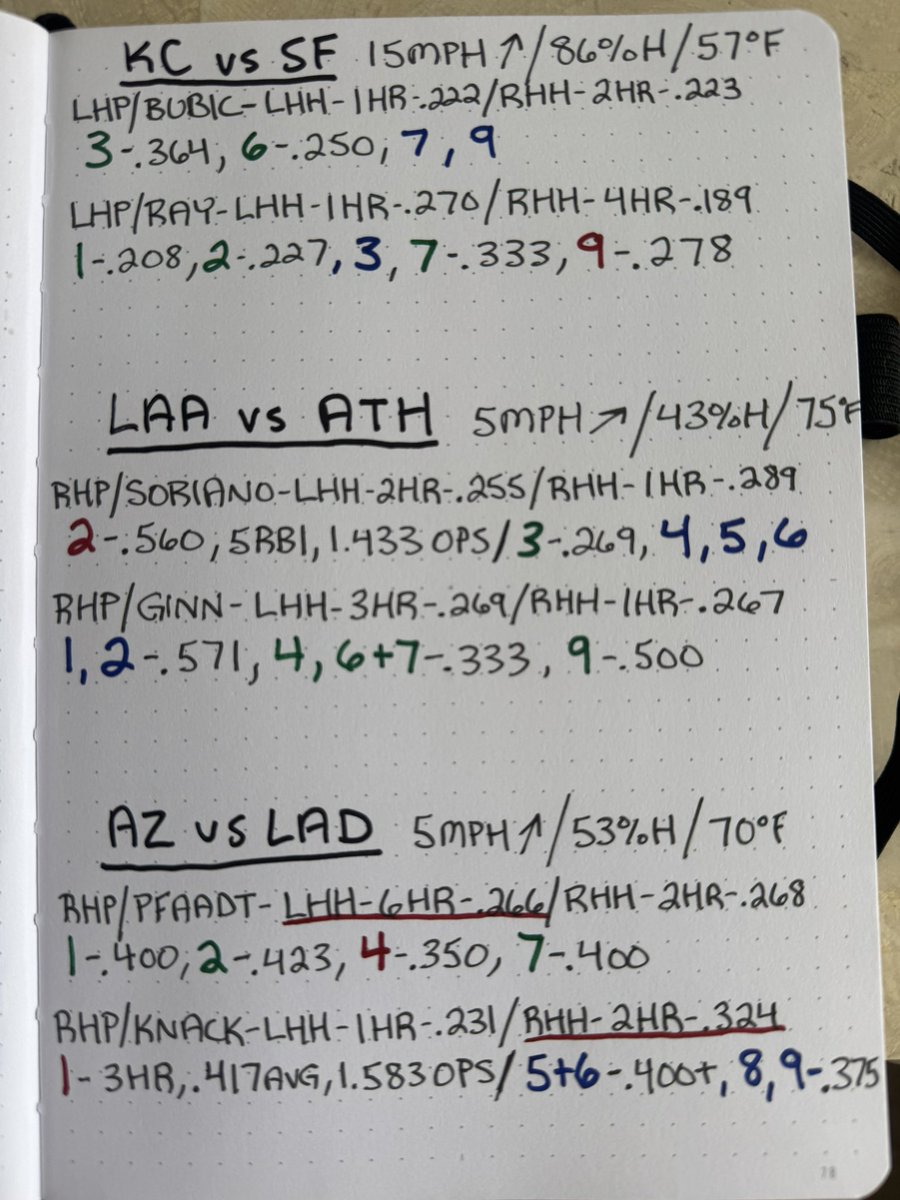 KC vs SF 15MPH ↑/86%H/57°F
LHP/BUBIC-LHH-1HR-.222/RHH-2HR-.223
3-.364, 6-.250, 7, 9
LHP/RAY-LHH-1HR-.270/RHH-4HR-.189
1-.208, 2-.227, 3, 7-.333, 9-.278
LAA vs ATH 5MPH ↗/43%H/75°F
RHP/SORIANO-LHH-2HR-.255/RHH-1HR-.289
2-.560, 5RBI, 1.433 OPS/3-.269, 4, 5, 6
RHP/GINN-LHH-3HR-.269/RHH-1HR-.267
1, 2-.571, 4, 6+7-.333, 9-.500
AZ vs LAD 5MPH ↑/53%H/70°F
RHP/PFAADT-LHH-6HR-.266/RHH-2HR-.268
1-.400, 2-.423, 4-.350, 7-.400
RHP/KNACK-LHH-1HR-.231/RHH-2HR-.324
1-3HR, .417AVG, 1.583 OPS/5+6-.400+, 8, 9-.375
78